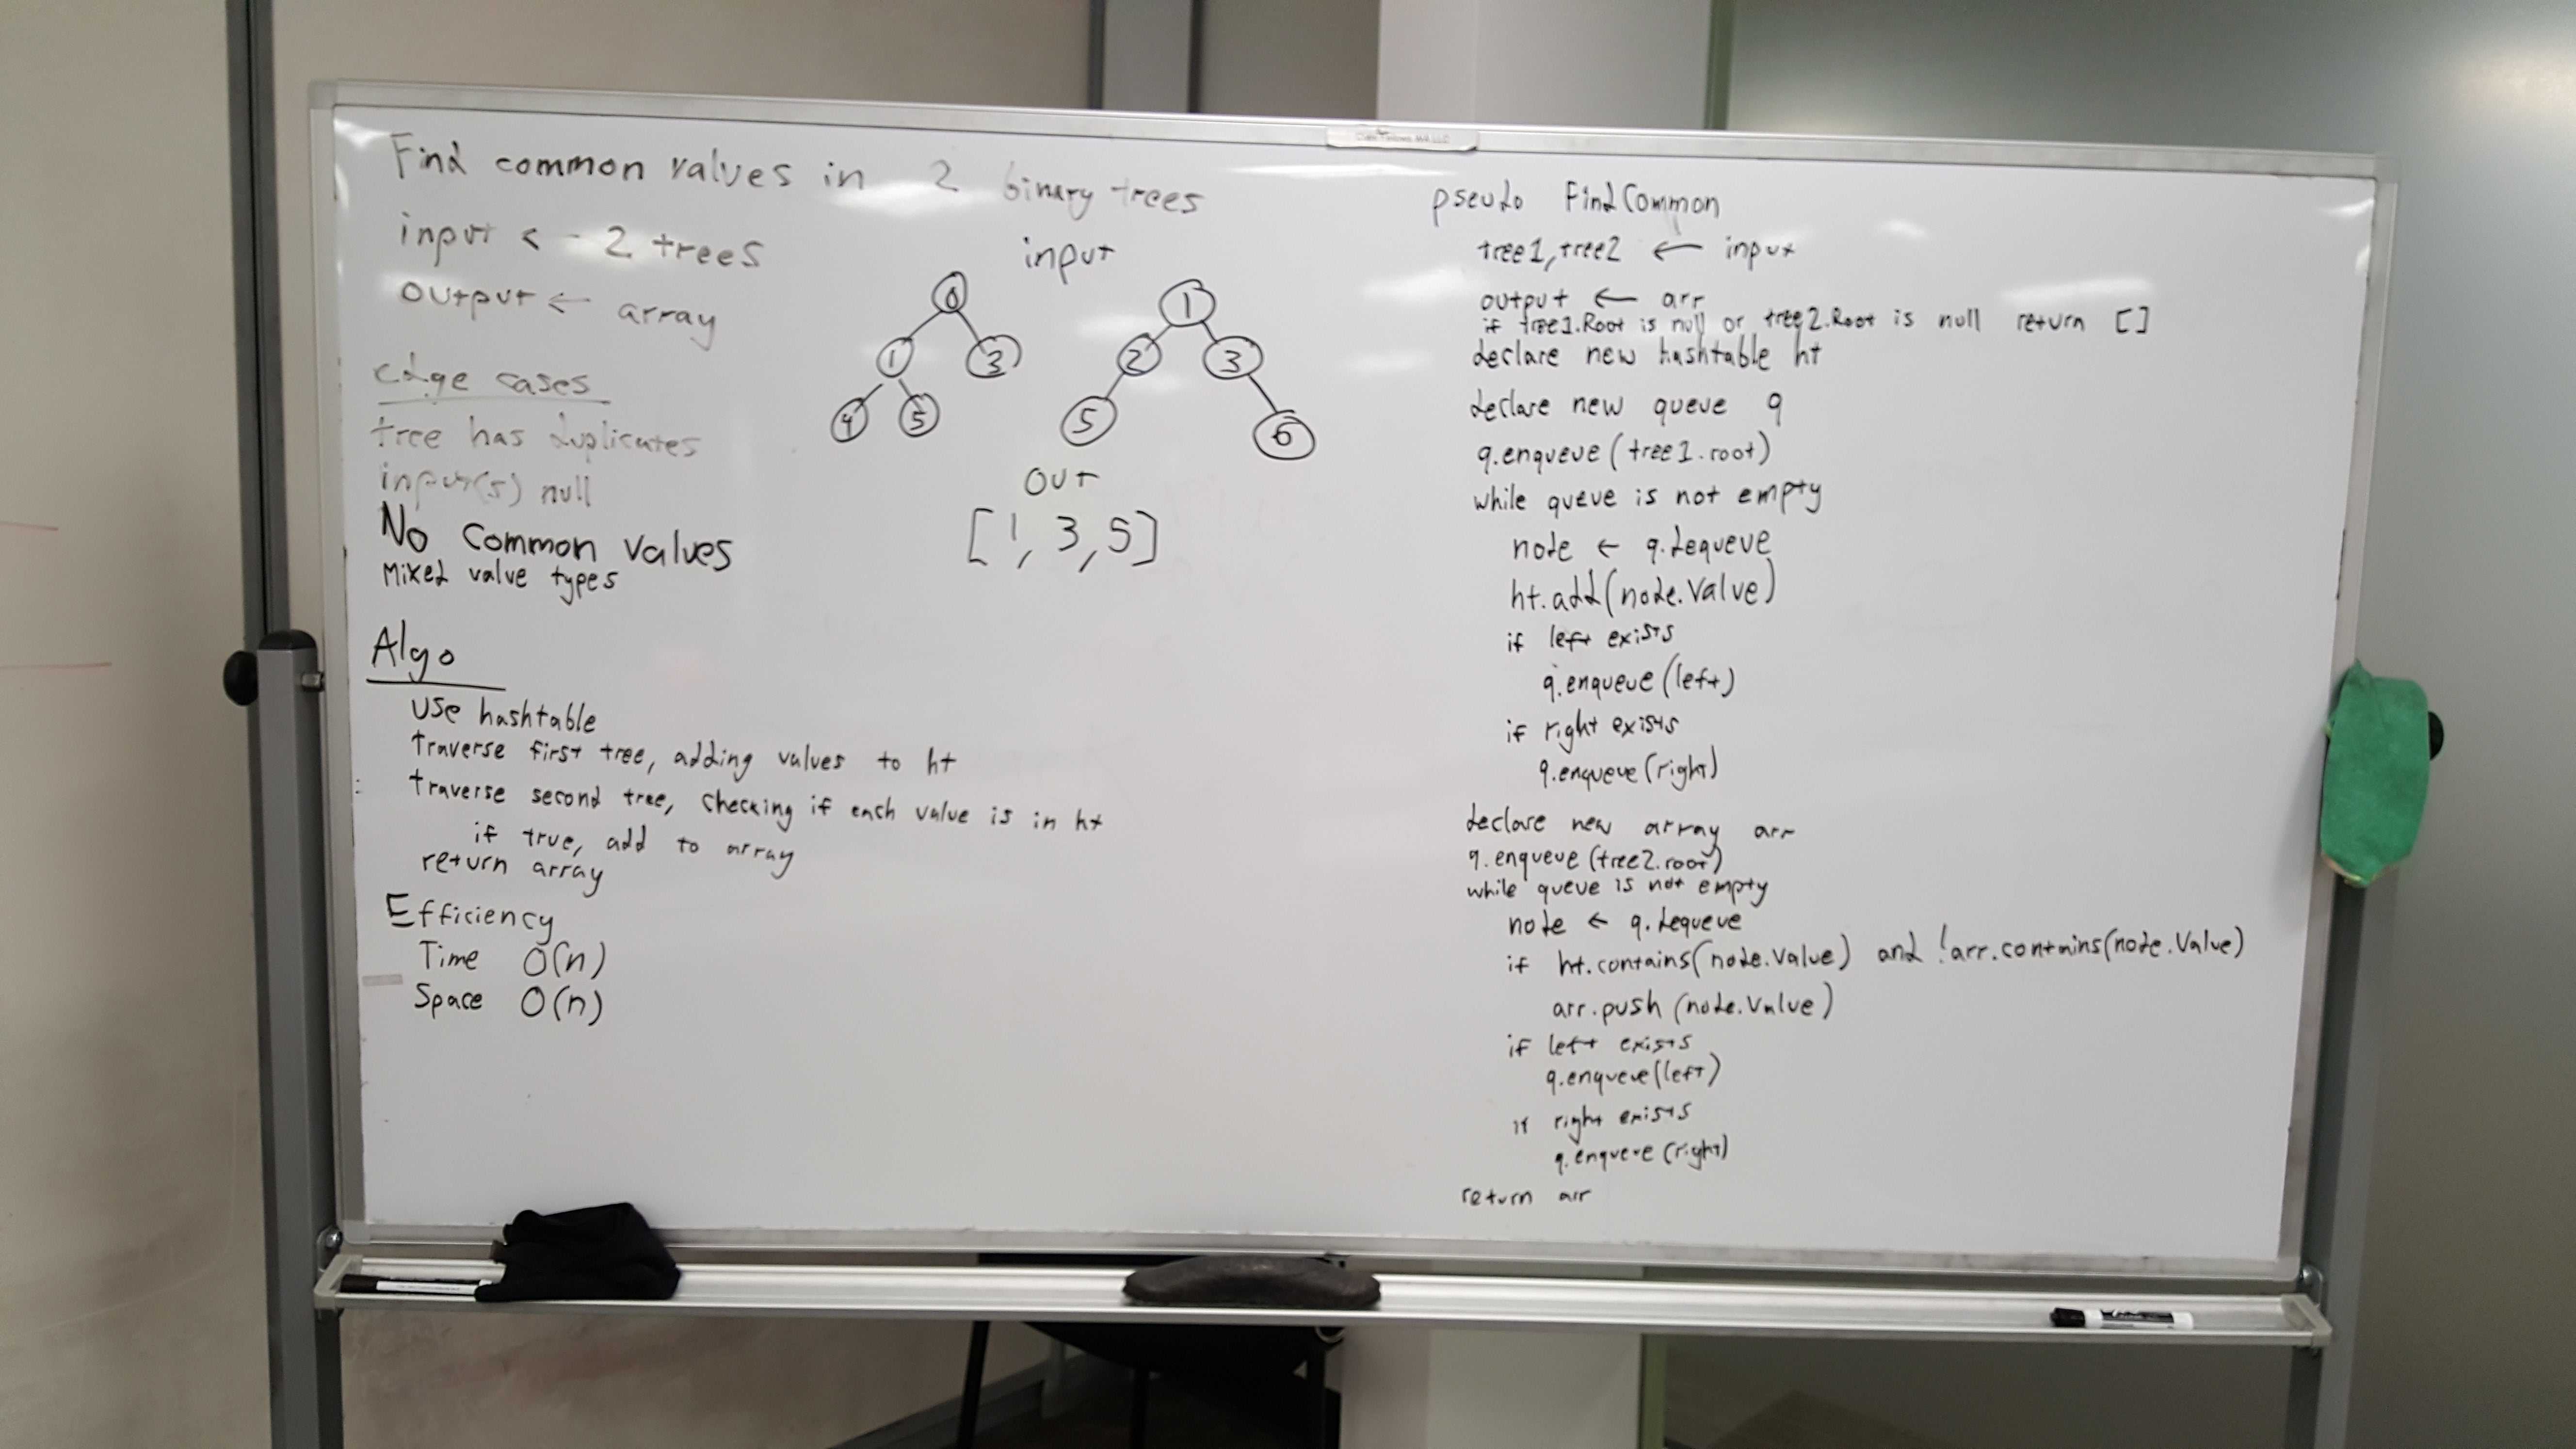 Find common values in 2 binary trees
input <- 2 trees
output ← array
edge cases
tree has duplicates
input(s) null
No Common Values
Mixed value types
input
0
1 3
4 5
1
2 3
5 6
out
[1, 3, 5]
Algo
Use hashtable
traverse first tree, adding values to ht
traverse second tree, checking if each value is in ht
if true, add to array
return array
Efficiency
Time O(n)
Space O(n)
pseudo FindCommon
tree1, tree2 ← input
output ← arr
if tree1.Root is null or tree2.Root is null return []
declare new hashtable ht
declare new queue q
q.enqueue(tree1.root)
while queue is not empty
node ← q.dequeue
ht.add(node.Value)
if left exists
q.enqueue(left)
if right exists
q.enqueue(right)
declare new array arr
q.enqueue(tree2.root)
while queue is not empty
node ← q.dequeue
if ht.contains(node.Value) and !arr.contains(node.Value)
arr.push(node.Value)
if left exists
q.enqueue(left)
if right exists
q.enqueue(right)
return arr